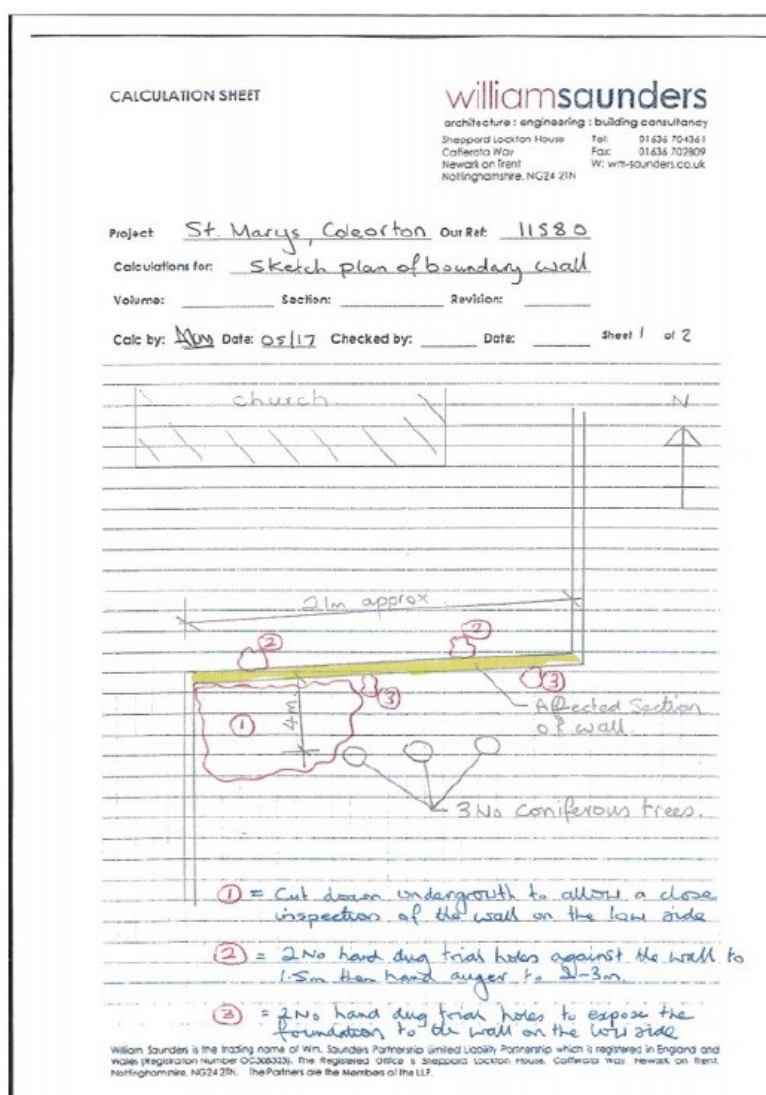 CALCULATION SHEET
williamsaunders
architecture : engineering : building consultancy
Sheppard Lockton House
Cafferata Way
Newark on Trent
Nottinghamshire, NG24 2TN
Tel: 01636 704361
Fax: 01636 702809
W: wm-saunders.co.uk
Project: St. Marys, Coleorton Our Ref: 11580
Calculations for: Sketch plan of boundary wall
Volume: Section: Revision:
Calc by: Date: 05/17 Checked by: Date: Sheet 1 of 2
church
N
21m approx
2
2
3
3
1
4m
Affected Section
of wall
3 No coniferous trees.
1 = Cut down undergrouth to allow a close
inspection of the wall on the low side
2 = 2 No hand dug trial holes against the wall to
1.5m then hand auger to 2-3m.
3 = 2 No hand dug trial holes to expose the
foundation to the wall on the low side
William Saunders is the trading name of Wm. Saunders Partnership Limited Liability Partnership which is registered in England and
Wales (Registration Number OC308323). The Registered Office is Sheppard Lockton House, Cafferata Way, Newark on Trent,
Nottinghamshire, NG24 2TN. The Partners are the Members of the LLP.